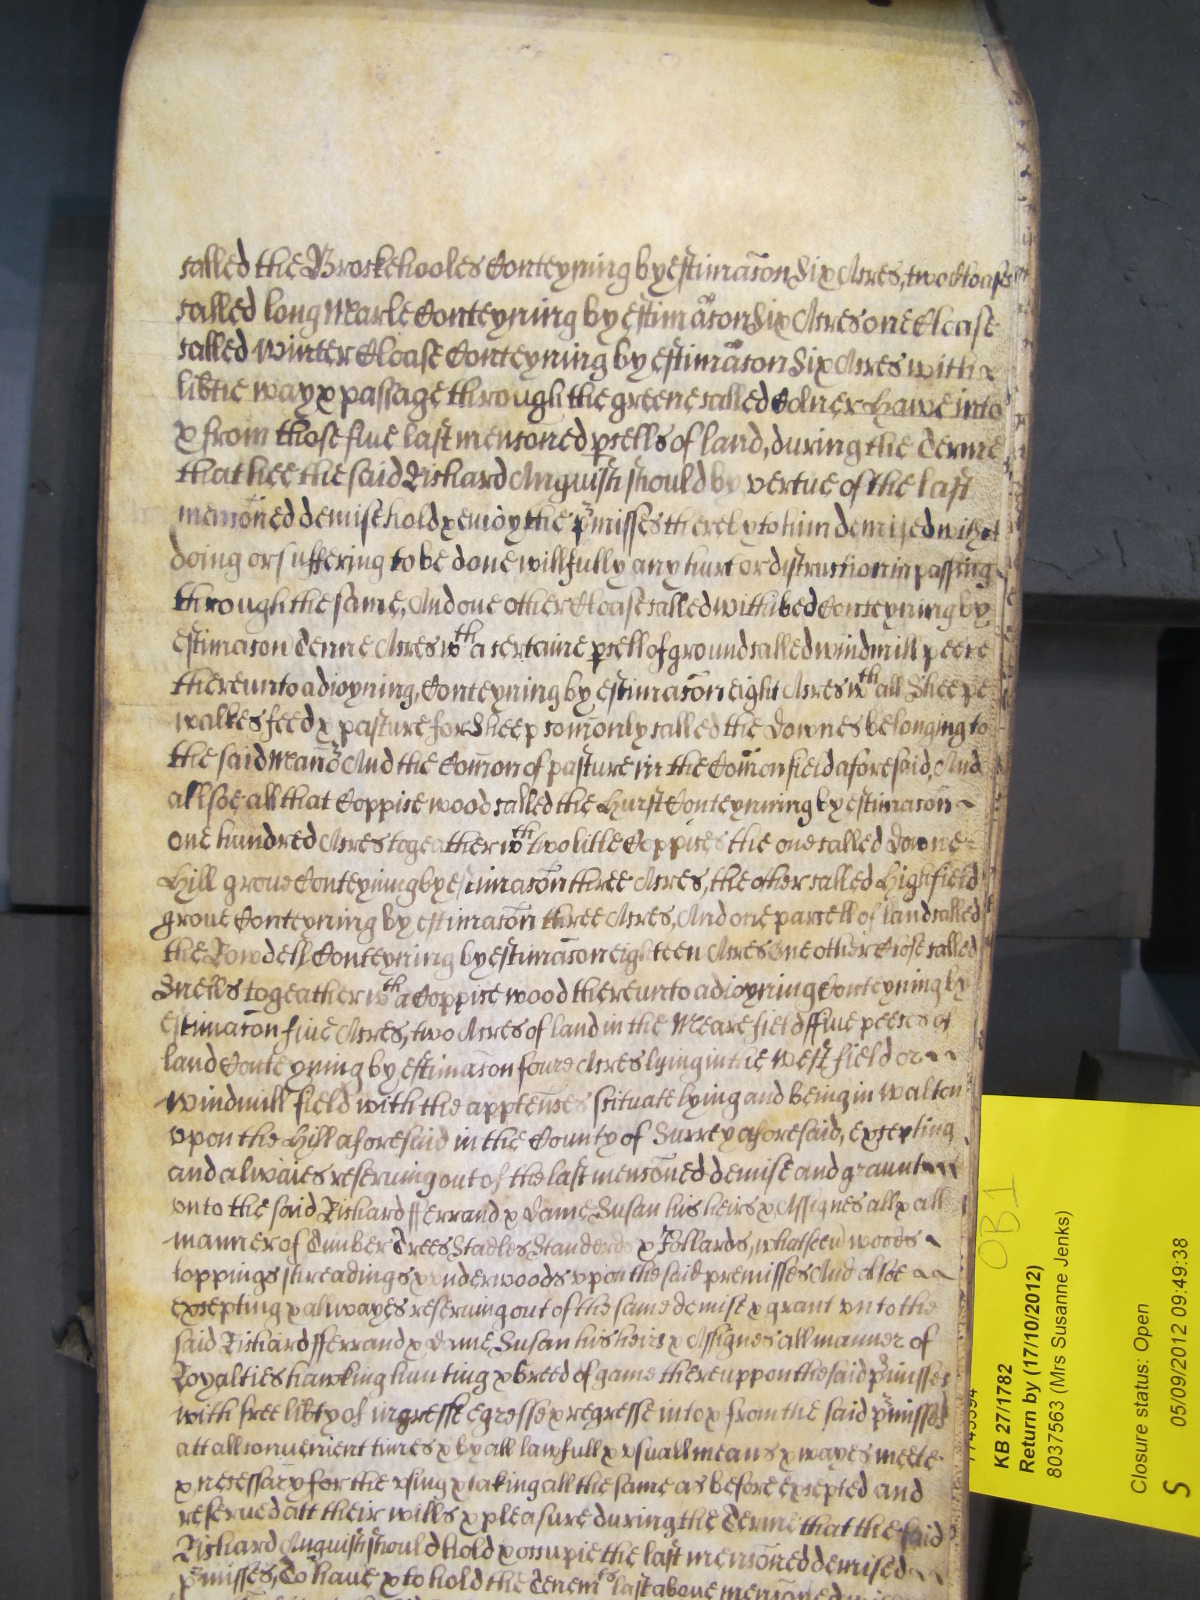 called the Brockehooles Conteyning by estimacon Six Acres, two Closes
called long Marle Conteyning by estimacon Six Acres one Close
called Winter Close Conteyning by estimacon Six Acres with
lib'tie way & passage through the greene called Colner Hawe into
& from those five last menconed p'cells of land, during the Terme
that hee the said Richard Anguish should by vertue of the last
menconed demise hold & enioy the p'misses thereby to him demized wthout
doing or suffering to be done willfully any hurt or distruction in passing
through the same, And one other Close called withibed Conteyning by
estimacon Tenne Acres wth a certaine p'cell of ground called windmill peece
thereunto adioyning, Conteyning by estimacon eight Acres wth all Sheepe
walkes feed & pasture for Sheep comonly called the Downes belonging to
the said Mannor And the Comon of pasture in the Comon field aforesaid, And
allsoe all that Coppice wood called the Hurst Conteyning by estimacon
one hundred Acres togeather wth two litle Coppices the one called Downe
Hill grove Conteyning by estimacon three Acres, the other called Highfield
grove Conteyning by estimacon three Acres, And one parcell of land called
the Rowdell Conteyning by estimacon eighteen Acres One other Close called
Snells togeather wth a Coppice wood thereunto adioyning Conteyning by
estimacon five Acres, two Acres of land in the Meare field ffive peeces of
land Conteyning by estimacon foure Acres lying in the West field or
Windmill field with the apptences scituate lying and being in Walton
vpon the Hill aforesaid in the County of Surrey aforesaid, excepting
and alwaies reserving out of the last menconed demise and graunt
vnto the said Richard fferrand & Dame Susan his heirs & Assignes all & all
manner of Timber Trees Stadles Standerds & Pollards, whatsoev' woods
toppings shreadings & vnderwoods vpon the said premisses And alsoe
excepting & alwayes reserving out of the same demise & grant vnto the
said Richard fferrand & Dame Susan his heirs & Assignes all manner of
Royalties hawking hunting & breed of game thereuppon the said p'misses
with free lib'ty of ingresse egresse & regresse into & from the said p'misses
att all convenient times & by all lawfull & vsuall means & wayes meete
& necessary for the vsing & taking all the same as before excepted and
reserved att their wills & pleasure during the Terme that the said
Richard Anguish should hold & occupie the last menconed demised
p'misses, To have & to hold the Tenemts last above menconed
KB 27/1782
Return by (17/10/2012)
80037563 (Mrs Susanne Jenks)
Closure status: Open
05/09/2012 09:49:38
S
OB1